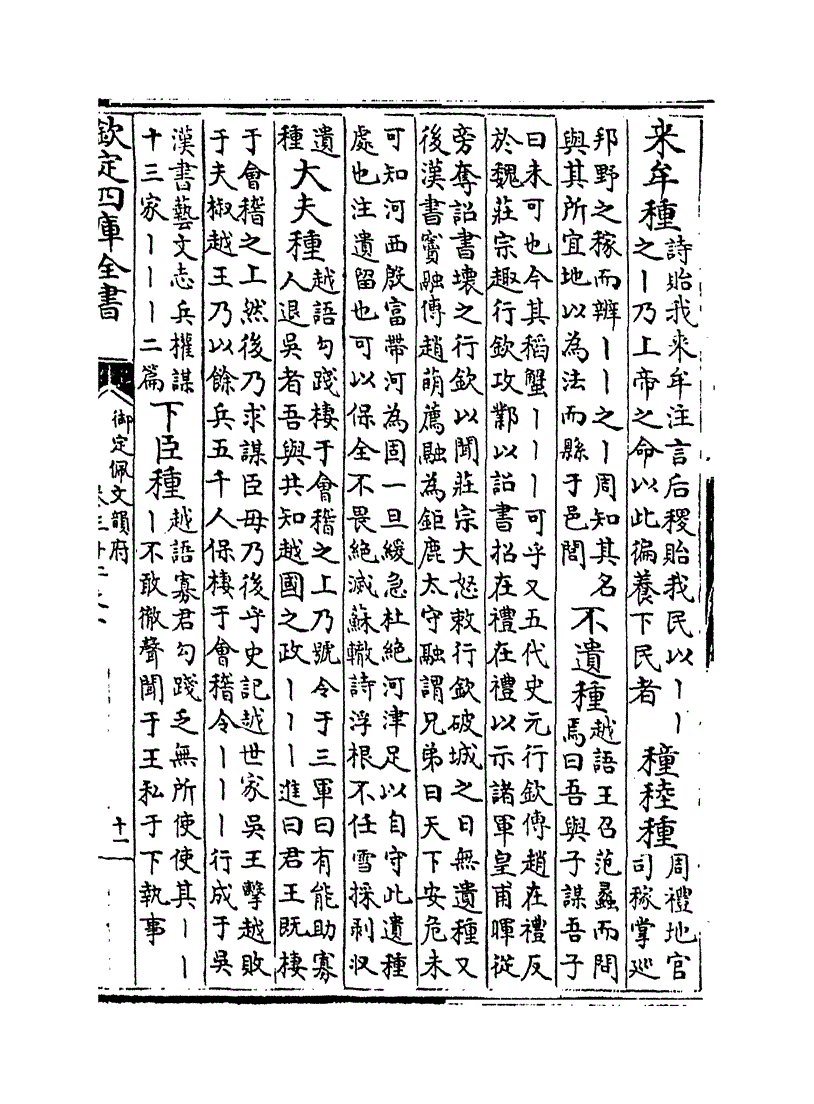 来牟種詩貽我來牟注言后稷貽我民以丨丨
之丨乃上帝之命以此徧養下民者 穜稑種周禮地官
司稼掌巡
邦野之稼而辨丨丨之丨周知其名
與其所宜地以為法而縣于邑閭 不遺種越語王召范蠡而問
焉曰吾與子謀吾子
曰未可也今其稻蟹丨丨丨可乎又五代史元行欽傳趙在禮反
於魏莊宗趣行欽攻鄴以詔書招在禮在禮以示諸軍皇甫暉從
旁奪詔書壞之行欽以聞莊宗大怒敕行欽破城之日無遺種又
後漢書竇融傳趙萌薦融為鉅鹿太守融謂兄弟曰天下安危未
可知河西殷富帶河為固一旦緩急杜絶河津足以自守此遺種
處也注遺留也可以保全不畏絶滅蘇轍詩浮根不任雪採剥收
遺
種 大夫種越語勾踐棲于會稽之上乃號令于三軍曰有能助寡
人退吳者吾與共知越國之政丨丨丨進曰君王既棲
于會稽之上然後乃求謀臣毋乃後乎史記越世家吳王擊越敗
于夫椒越王乃以餘兵五千人保棲于會稽令丨丨丨行成于吳
漢書藝文志兵權謀
十三家丨丨丨二篇 下臣種越語寡君勾踐乏無所使使其丨丨
丨不敢徹聲聞于王私于下執事
欽定四庫全書
御定佩文韻府
十一